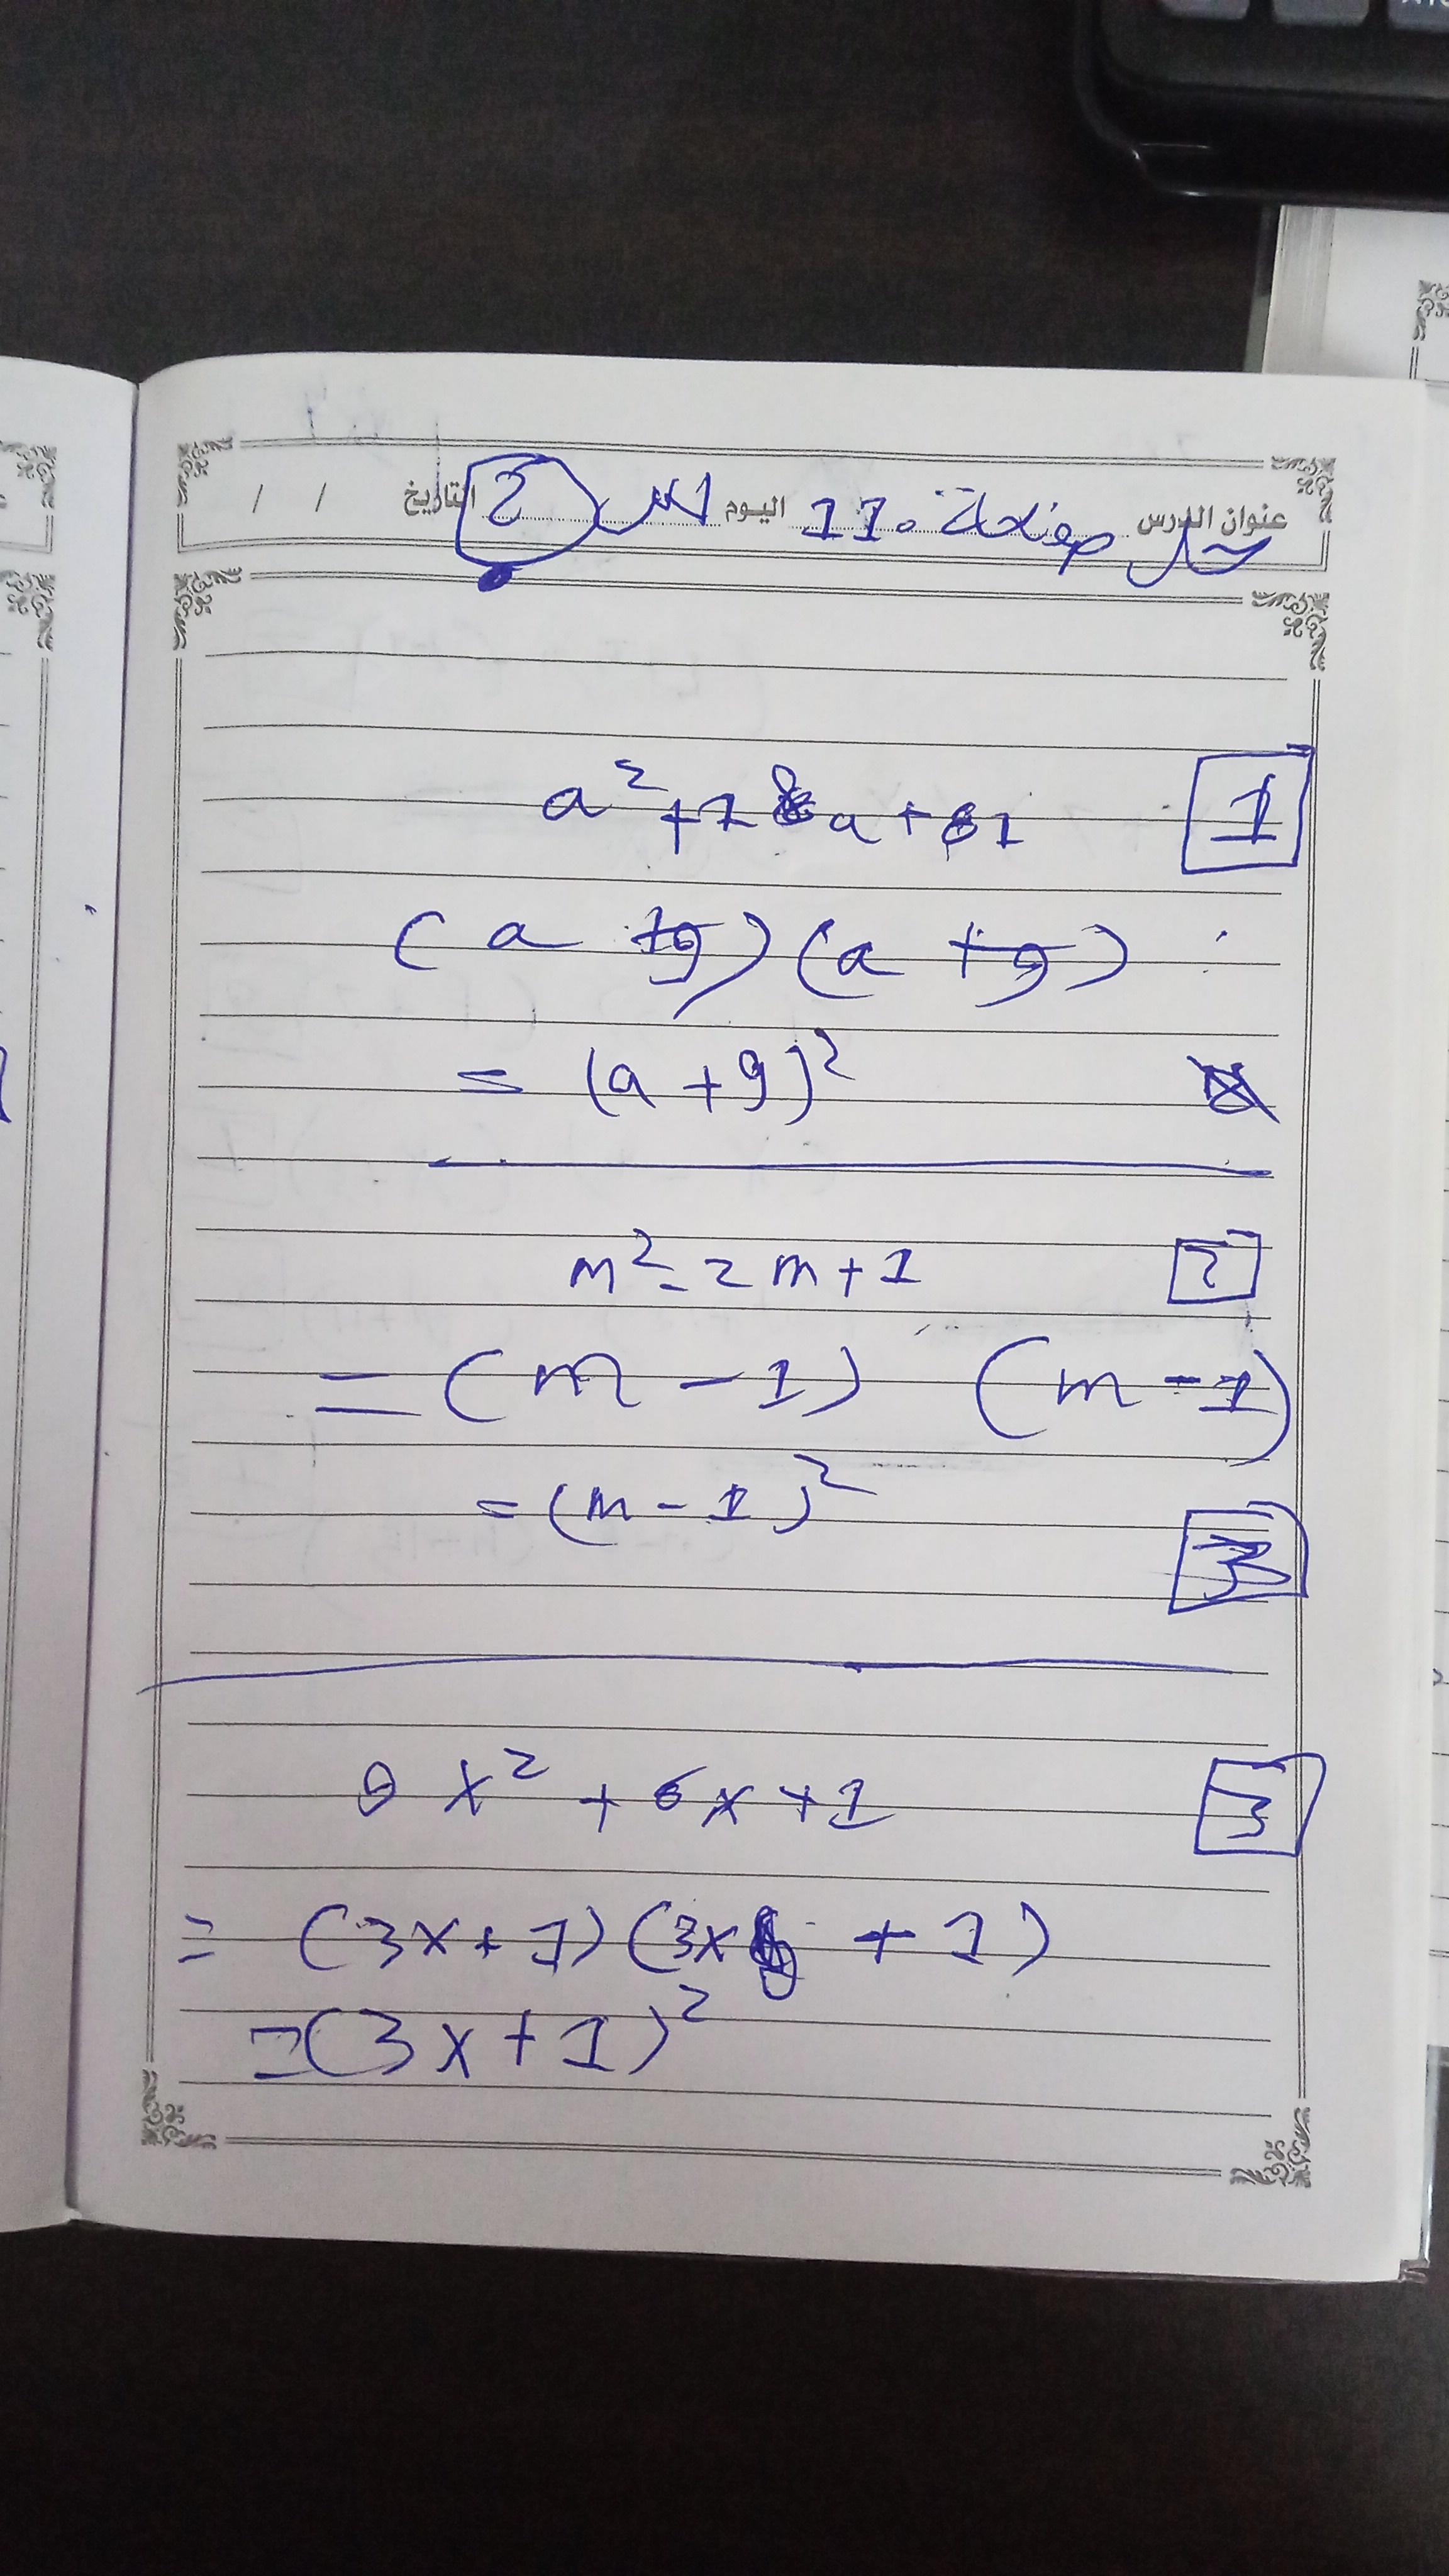 عنوان الدرس حل صفحة 110 اليوم التاريخ / /
2
1
a²+18a+81
(a +9) (a +9)
= (a+9)²
2
m²-2m+1
= (m-1) (m-1)
= (m-1)²
3
3
9x²+6x+1
= (3x+1)(3x +1)
=(3x+1)²